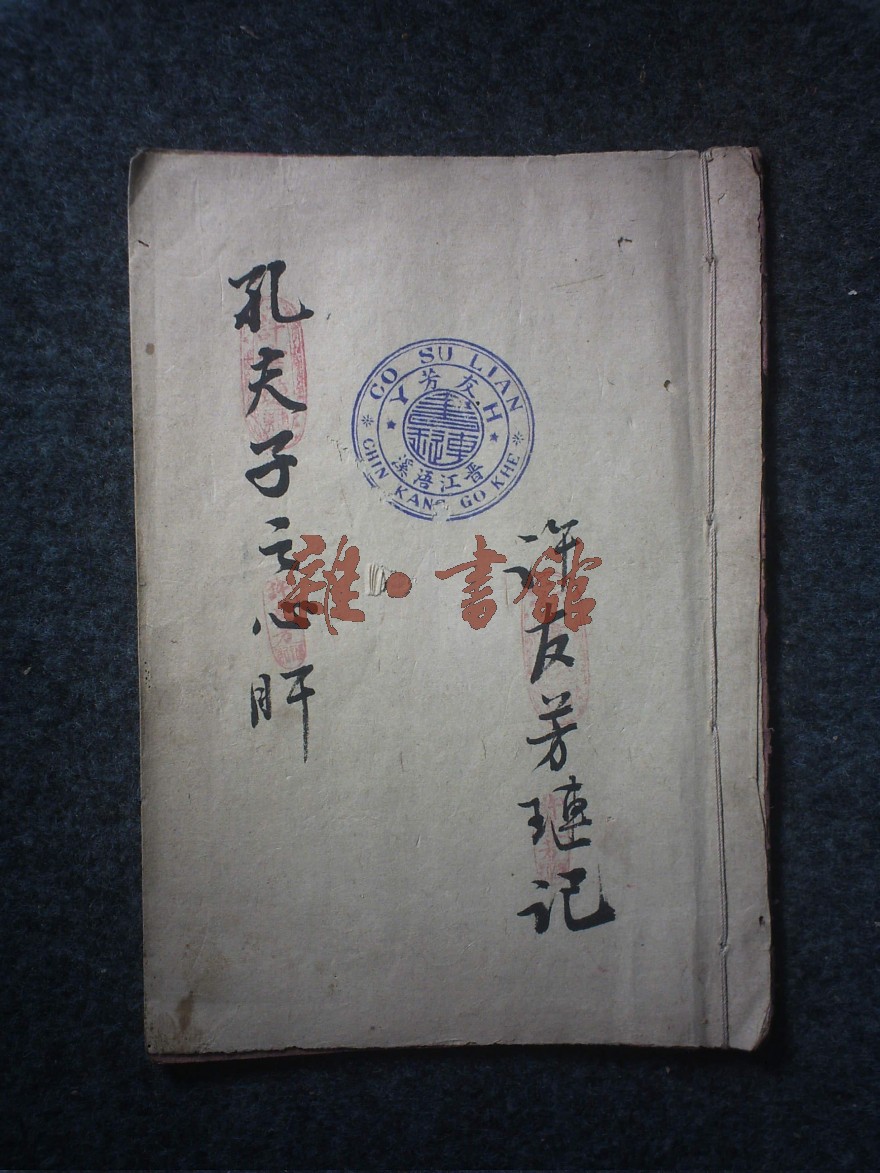 許友芳璉記
孔夫子之心肝
CO SU LIAN
友芳
Y H
晋江浯溪
CHIN KANG GO KHE
雜·書館